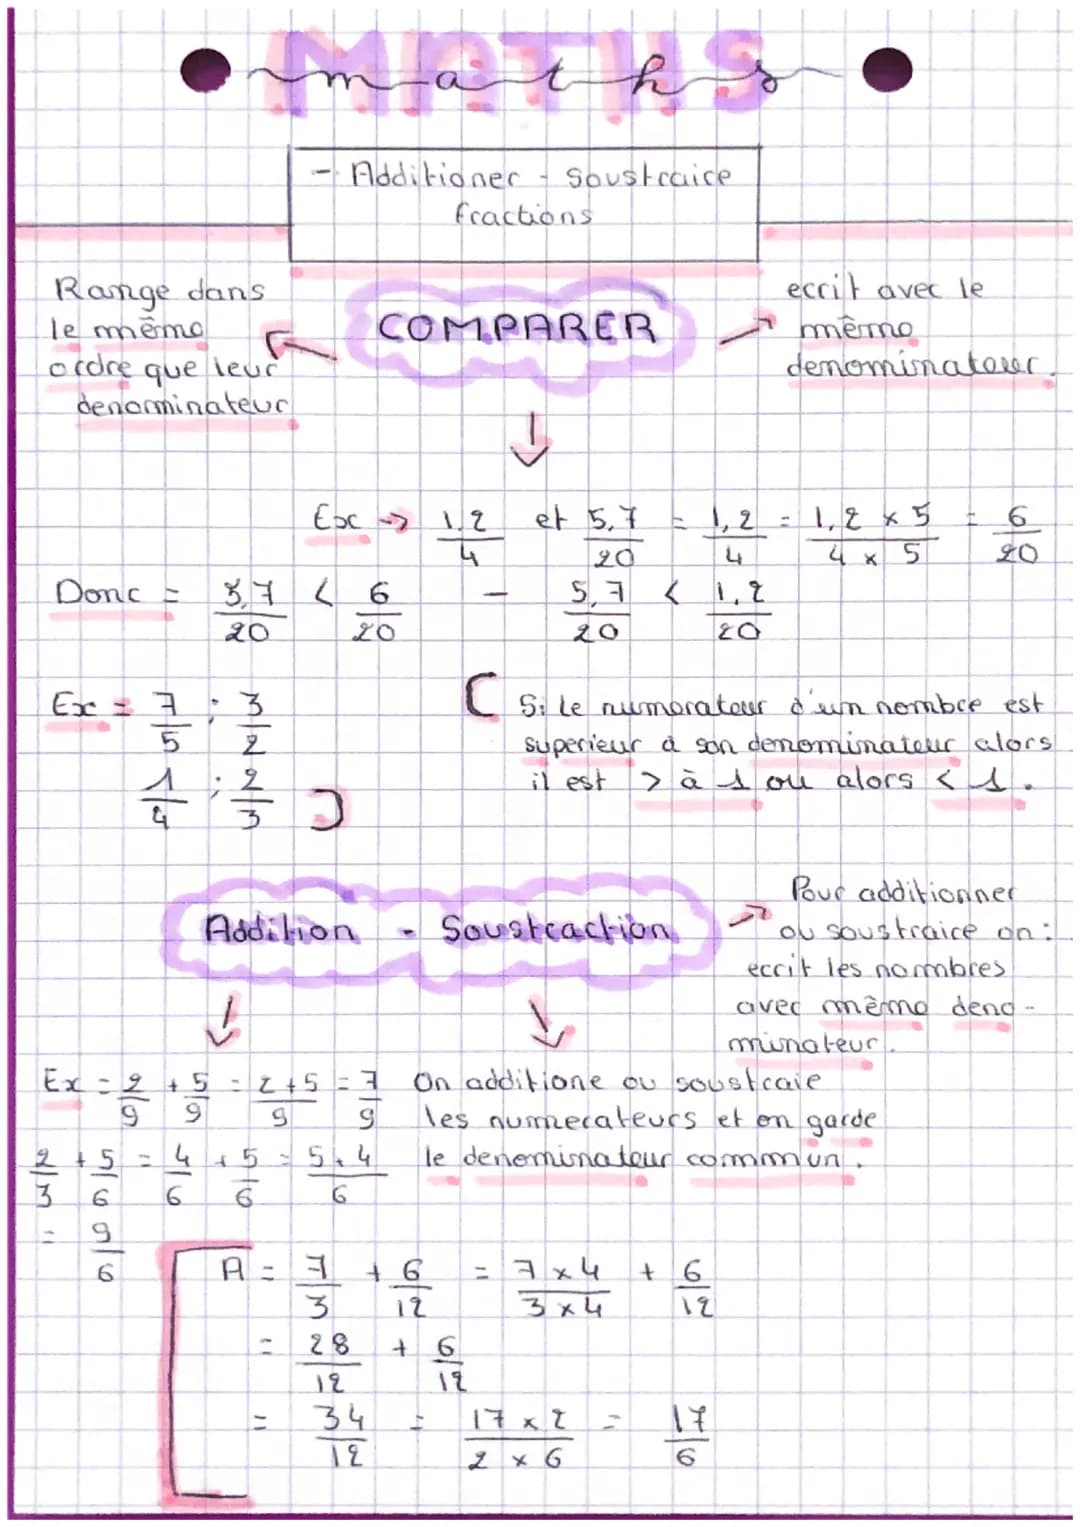 MATHS
maths
- Additioner - Soustraire
fractions
Range dans
le même
ordre que leur
denominateur
COMPARER
ecrit avec le
même
denominateur.
Ex → 1,2/4 et 5,7/20 = 1,2/4 = 1,2 x 5/4 x 5 = 6/20
Donc = 5,7/20 < 6/20 - 5,7/20 < 1,2/20
Ex = 7/5 ; 3/2
1/4 ; 2/3
[ Si le numerateur d'un nombre est
superieur à son denominateur alors
il est > à 1 ou alors < 1. ]
Addition - Soustraction
Pour additionner
ou soustraire on :
ecrit les nombres
avec même deno-
minateur.
Ex = 2/9 + 5/9 = 2+5/9 = 7/9
2/3 + 5/6 = 4/6 + 5/6 = 5+4/6
= 9/6
On additione ou soustraie
les numerateurs et on garde
le denominateur commun.
A = 7/3 + 6/12 = 7 x 4/3 x 4 + 6/12
= 28/12 + 6/12
= 34/12 = 17 x 2/2 x 6 = 17/6